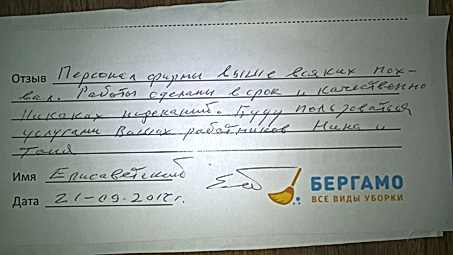 Отзыв Персонал фирмы выше всяких пох-
вал. Работы сделаны в срок и качественно
Никаких нареканий. Буду пользоваться
услугами Ваших работников Нина и
Таня
Имя
Дата 21-09-201 г.
БЕРГАМО
ВСЕ ВИДЫ УБОРКИ